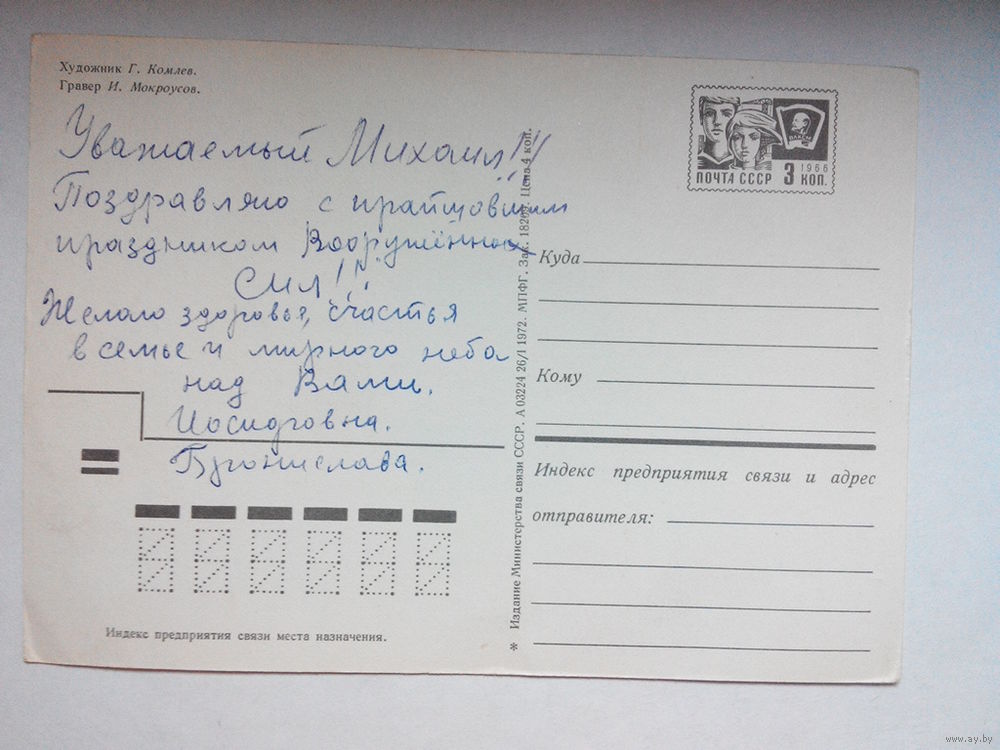 Художник Г. Комлев.
Гравер И. Мокроусов.
Уважаемый Михаил!!!
Поздравляю с
праздником Вооружённых
Сил!!!
Желаю здоровья, счастья
в семье и мирного неба
над Вами.
Бронислава.
Индекс предприятия связи места назначения.
* Издание Министерства связи СССР. А 03224 26/I 1972. МПФГ. Зак. Цена 4 коп.
ВЛКСМ
1966
ПОЧТА СССР 3 КОП.
Куда
Кому
Индекс предприятия связи и адрес
отправителя:
www.ay.by